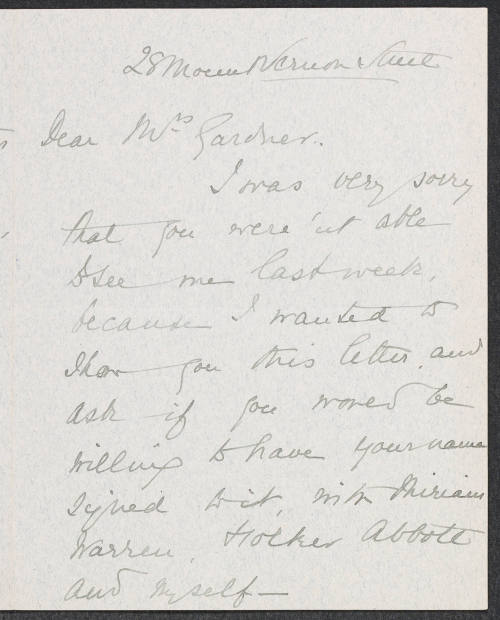 28 Mount Vernon Street
Dear Mrs Gardner.
I was very sorry
that you were'nt able
to see me last week,
because I wanted to
show you this letter, and
ask if you would be
willing to have your name
signed to it, with Miriam
Warren, Holker Abbott
and myself—